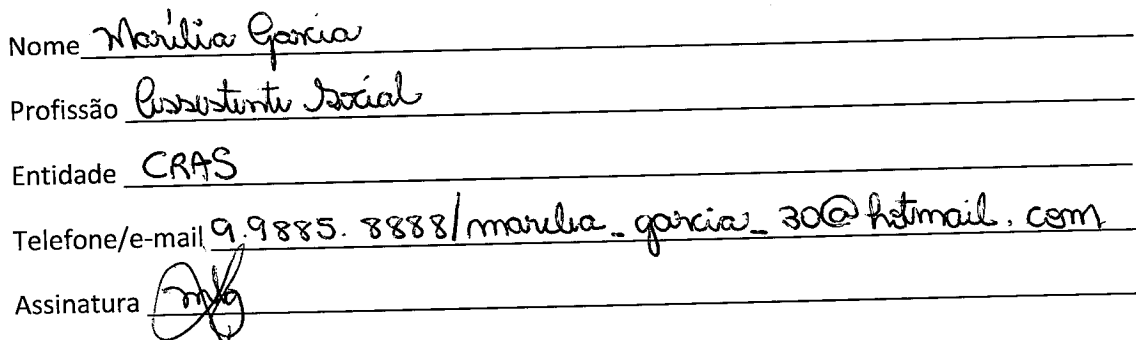 Nome Marília Garcia
Profissão Assistente Social
Entidade CRAS
Telefone/e-mail 9.9885.8888/marilia_garcia_30@hotmail.com
Assinatura